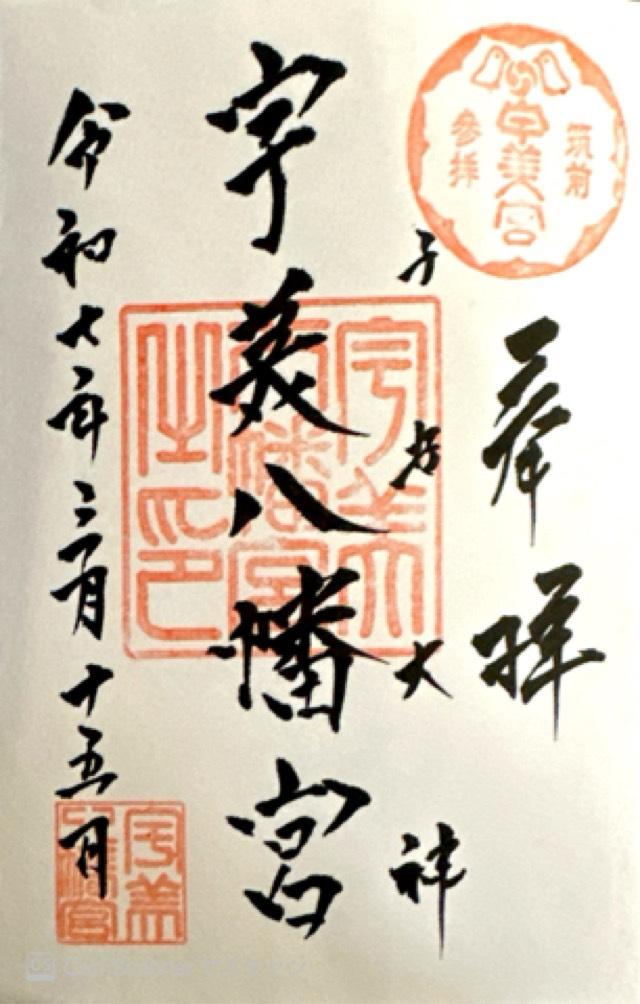 筑前
宇美宮
参拝
奉拝
子安大神
宇美八幡宮
令和七年三月十五日
宇美八幡宮之印
宇美八幡宮